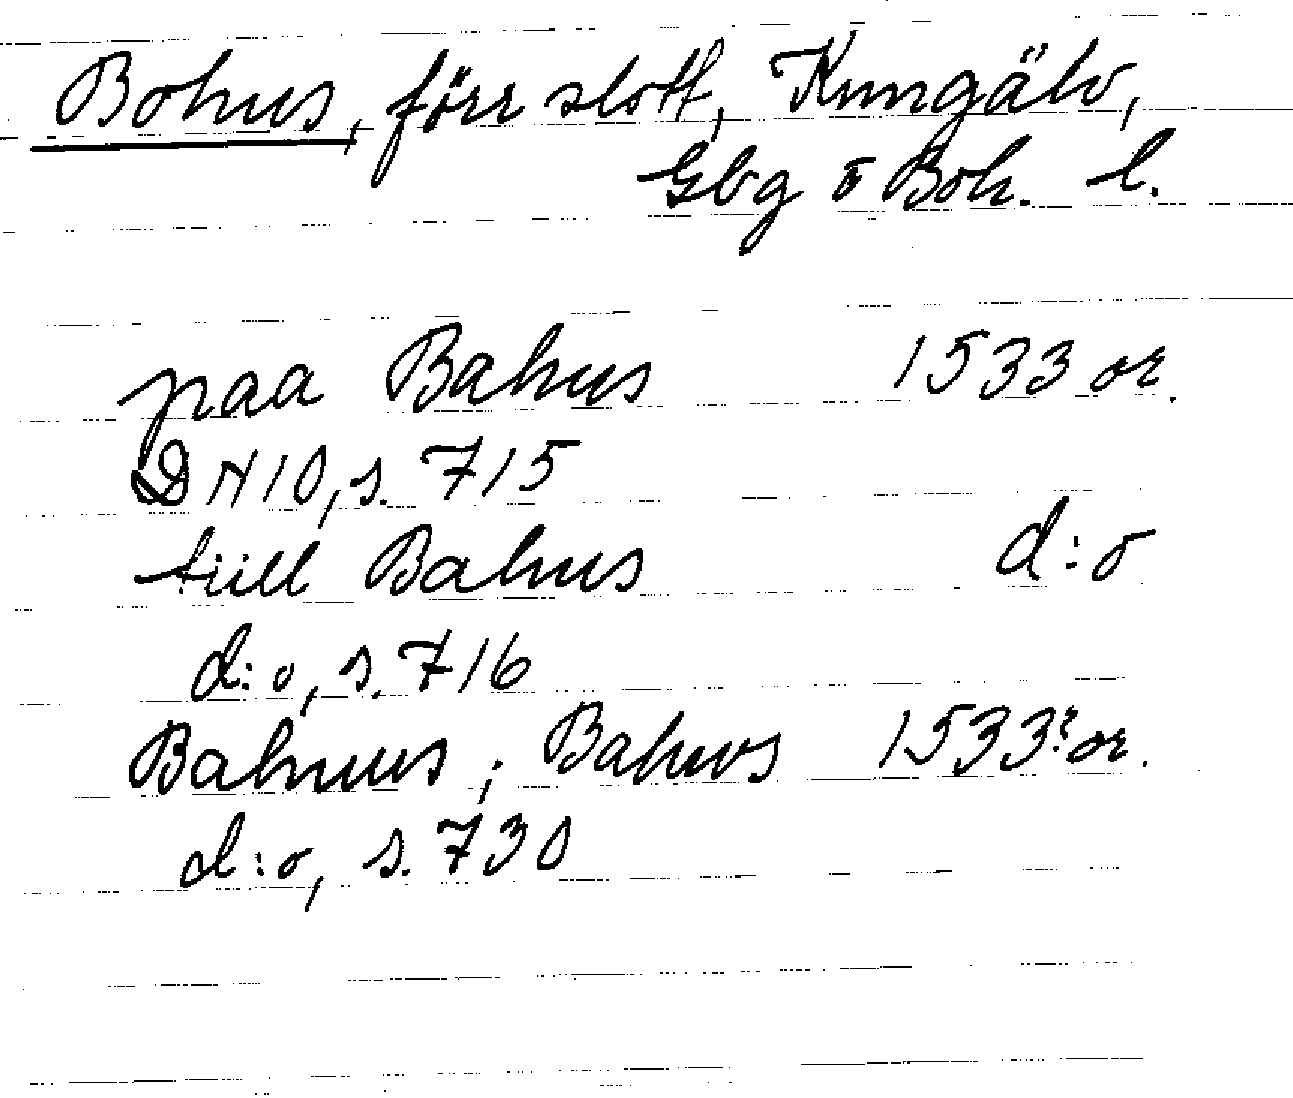 Bohus, förr slott, Kungälv,
Gbg o Boh. l.
paa Bahus 1533 or.
DN 10, s. 715
tiill Bahus d:o
d:o, s. 716
Bahuus; Bahws 1533? or.
d:o, s. 730